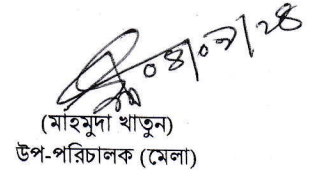 ০৪/০৭/২৪
(মাহমুদা খাতুন)
উপ-পরিচালক (মেলা)